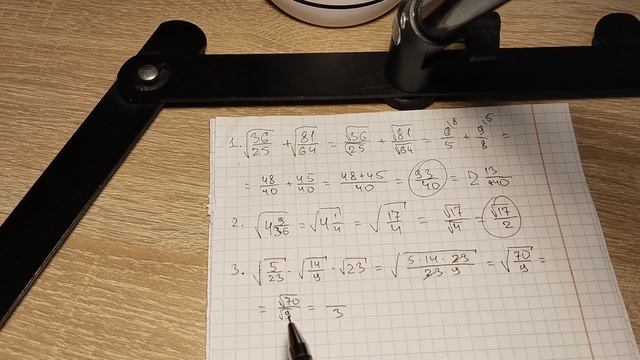 1. √(36/25) + √(81/64) = √36/√25 + √81/√64 = 6^\8/5 + 9^\5/8 =
= 48/40 + 45/40 = (48+45)/40 = 93/40 = 2 13/40
2. √(4 9/36) = √(4 1/4) = √(17/4) = √17/√4 = √17/2
3. √(5/23) · √(14/9) · √23 = √((5·14·23)/(23·9)) = √(70/9) =
= √70/√9 = /3